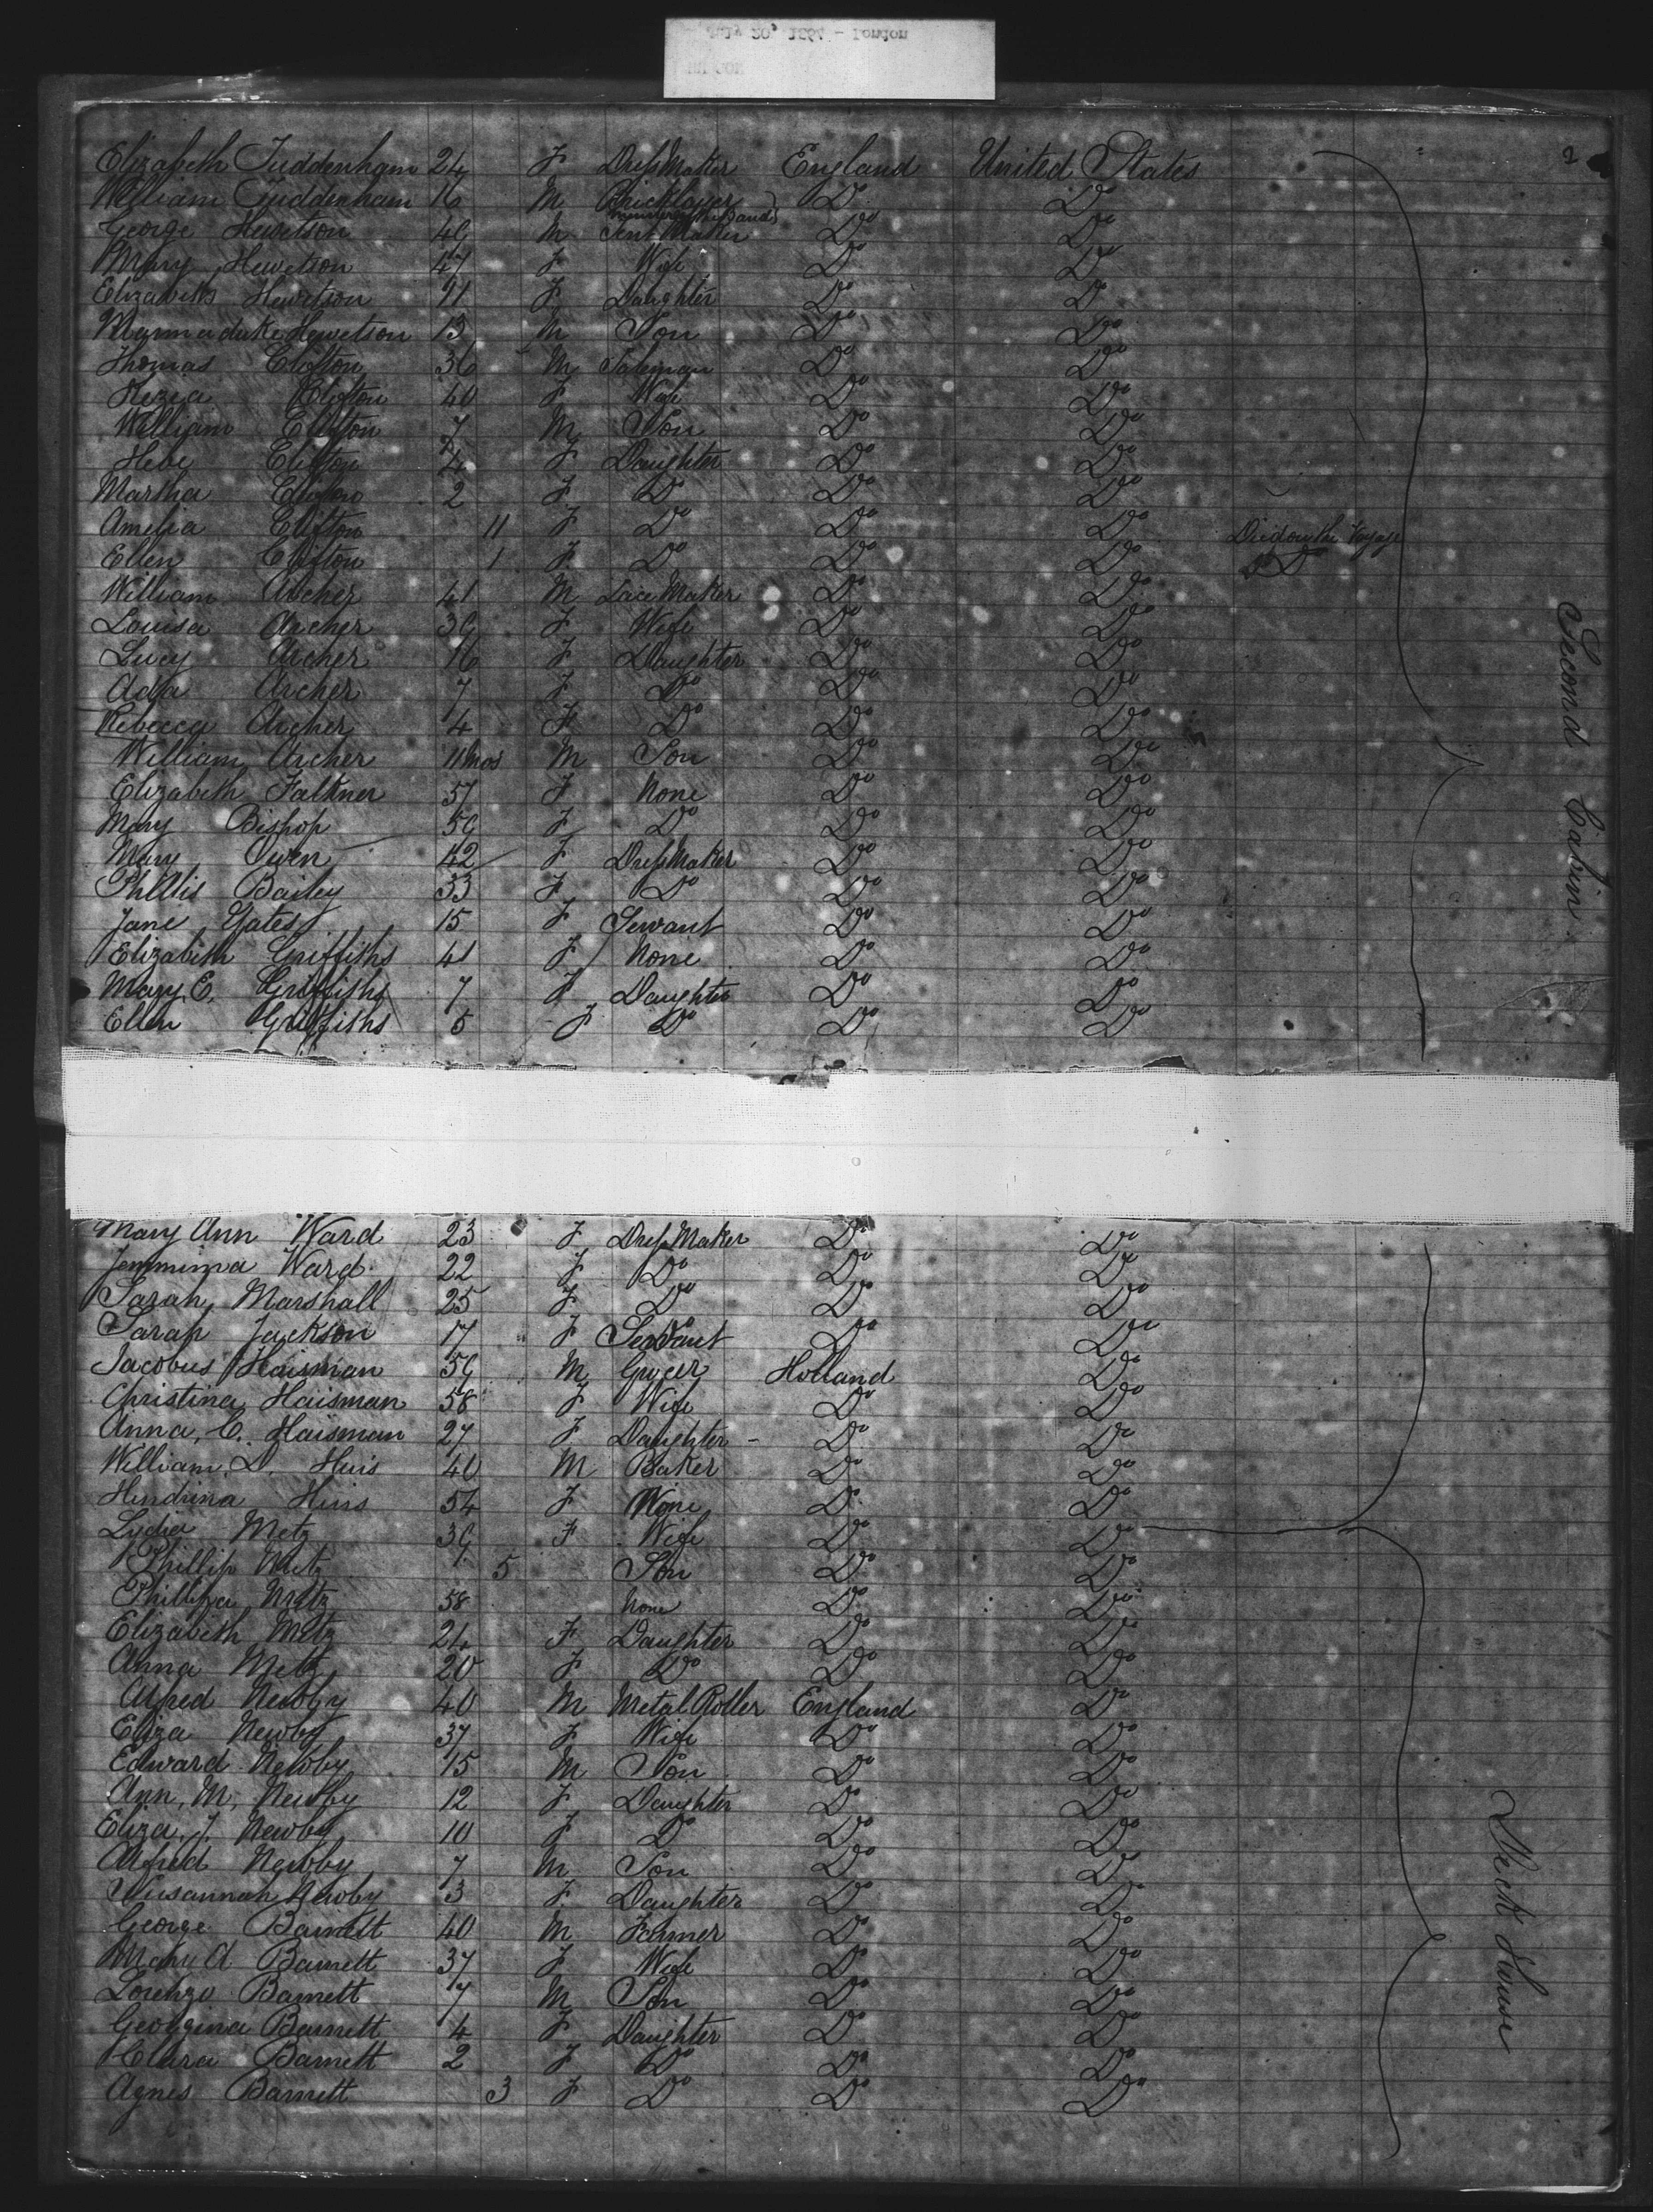 July 20, 1864 - London
2
Elizabeth Tuddenham 24 F DressMaker England United States
William Tuddenham 16 M Bricklayer Do Do
George Hewetson 49 M Tent Maker Do Do
Mary Hewetson 47 F Wife Do Do
Elizabeth Hewetson 21 F Daughter Do Do
Marmaduke Hewetson 13 M Son Do Do
Thomas Clifton 36 M Salesman Do Do
Kezia Clifton 40 F Wife Do Do
William Clifton 7 M Son Do Do
Hebe Clifton 4 F Daughter Do Do
Martha Clifton 2 F Do Do Do
Amelia Clifton 11 F Do Do Do Died on the Voyage
Ellen Clifton 1 F Do Do Do Do
William Archer 41 M Lace Maker Do Do
Louisa Archer 39 F Wife Do Do
Lucy Archer 16 F Daughter Do Do
Ada Archer 7 F Do Do Do
Rebecca Archer 4 F Do Do Do
William Archer 11 mos M Son Do Do
Elizabeth Falkner 57 F None Do Do
Mary Bishop 59 F Do Do Do
Mary Owen 42 F DressMaker Do Do
Phillis Bailey 33 F Do Do Do
Jane Yates 15 F Servant Do Do
Elizabeth Griffiths 41 F None Do Do
Mary E. Griffiths 7 F Daughter Do Do
Ellen Griffiths 5 F Do Do Do
Second Cabin
Mary Ann Ward 23 F DressMaker Do Do
Jemmima Ward 22 F Do Do Do
Sarah Marshall 25 F Do Do Do
Sarah Jackson 17 F Servant Do Do
Jacobus Haisman 59 M Grocer Holland Do
Christina Haisman 58 F Wife Do Do
Anna C. Haisman 27 F Daughter Do Do
William D. Huis 40 M Baker Do Do
Hendrina Huis 54 F None Do Do
Lydia Metz 39 F Wife Do Do
Phillip Metz 5 Son Do Do
Phillipa Metz 58 None Do Do
Elizabeth Metz 24 F Daughter Do Do
Anna Metz 20 F Do Do Do
Alfred Newby 40 M Metal Roller England Do
Eliza Newby 37 F Wife Do Do
Edward Newby 15 M Son Do Do
Ann, M, Newby 12 F Daughter Do Do
Eliza. J. Newby 10 F Do Do Do
Alfred Newby 7 M Son Do Do
Newby 3 F Daughter Do Do
George Barnett 40 M Farmer Do Do
Mary A Barnett 37 F Wife Do Do
Lorenzo Barnett 7 M Son Do Do
Georgina Barnett 4 F Daughter Do Do
Clara Barnett 2 F Do Do Do
Agnes Barnett 3 F Do Do Do
Deck House